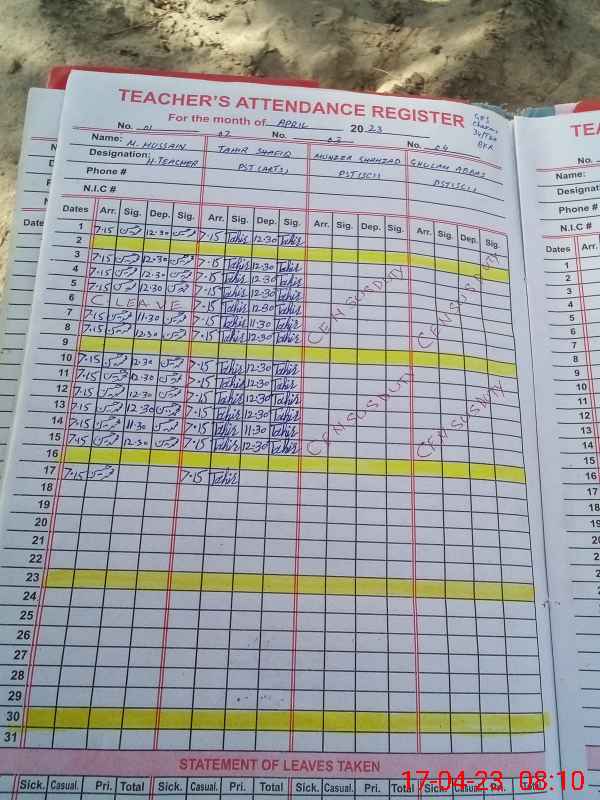 TEACHER'S ATTENDANCE REGISTER
For the month of APRIL 2023
GPS
34/TDA
BKR
No. 01 02 No. 03 No. 04
Name: M. HUSSAIN TAHIR SHAFIQ MUNEER SHAHZAD GHULAM ABBAS
Designation: H.TEACHER PST(ARTS) PST(SCI) PST(SCI)
Phone #
N.I.C #
Dates Arr. Sig. Dep. Sig. Arr. Sig. Dep. Sig. Arr. Sig. Dep. Sig. Arr. Sig. Dep. Sig.
1 7.15 12.30 7.15 Tahir 12.30 Tahir
2
3 7.15 12.30 7.15 Tahir 12.30 Tahir
4 7.15 12.30 7.15 Tahir 12.30 Tahir
5 7.15 12.30 7.15 Tahir 12.30 Tahir
6 C. LEAVE 7.15 Tahir 12.30 Tahir
7 7.15 11.30 7.15 Tahir 11.30 Tahir
8 7.15 12.30 7.15 Tahir 12.30 Tahir
CENSUS DUTY CENSUS DUTY
9
10 7.15 12.30 7.15 Tahir 12.30 Tahir
11 7.15 12.30 7.15 Tahir 12.30 Tahir
12 7.15 12.30 7.15 Tahir 12.30 Tahir
13 7.15 12.30 7.15 Tahir 12.30 Tahir
14 7.15 11.30 7.15 Tahir 11.30 Tahir
15 7.15 12.30 7.15 Tahir 12.30 Tahir
CENSUS DUTY CENSUS DUTY
16
17 7.15 7.15 Tahir
18
19
20
21
22
23
24
25
26
27
28
29
30
31
STATEMENT OF LEAVES TAKEN
Sick. Casual. Pri. Total Sick. Casual. Pri. Total Sick. Casual. Pri. Total Sick. Casual. Pri. Total
TEA
No.
Name:
Designat
Phone #
N.I.C #
Dates Arr.
1
2
3
4
5
6
7
8
9
10
11
12
13
14
15
16
17
18
19
20
21
22
23
24
25
26
27
28
29
30
31
17-04-23 08:10